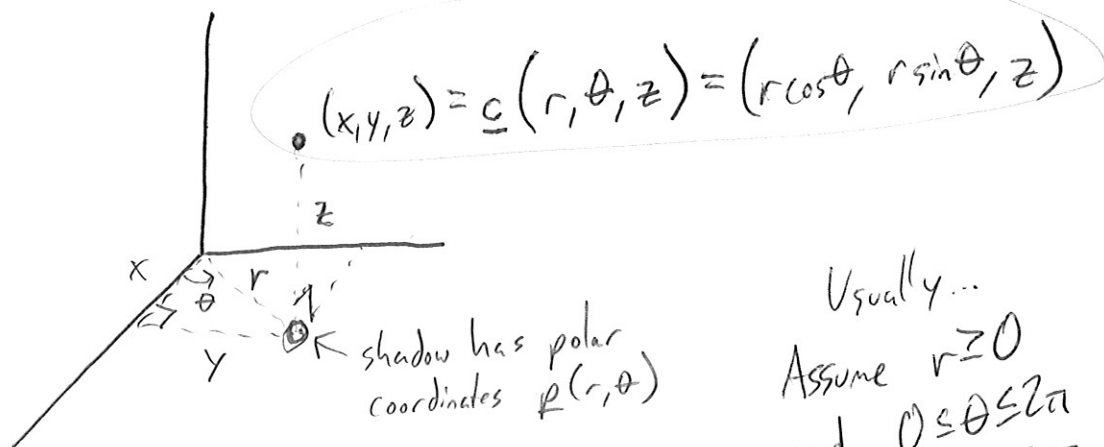 (x,y,z) = c(r,θ,z) = (r cosθ, r sinθ, z)
z
x
r
θ
y
shadow has polar
coordinates p(r,θ)
Usually...
Assume r≥0
0≤θ≤2π